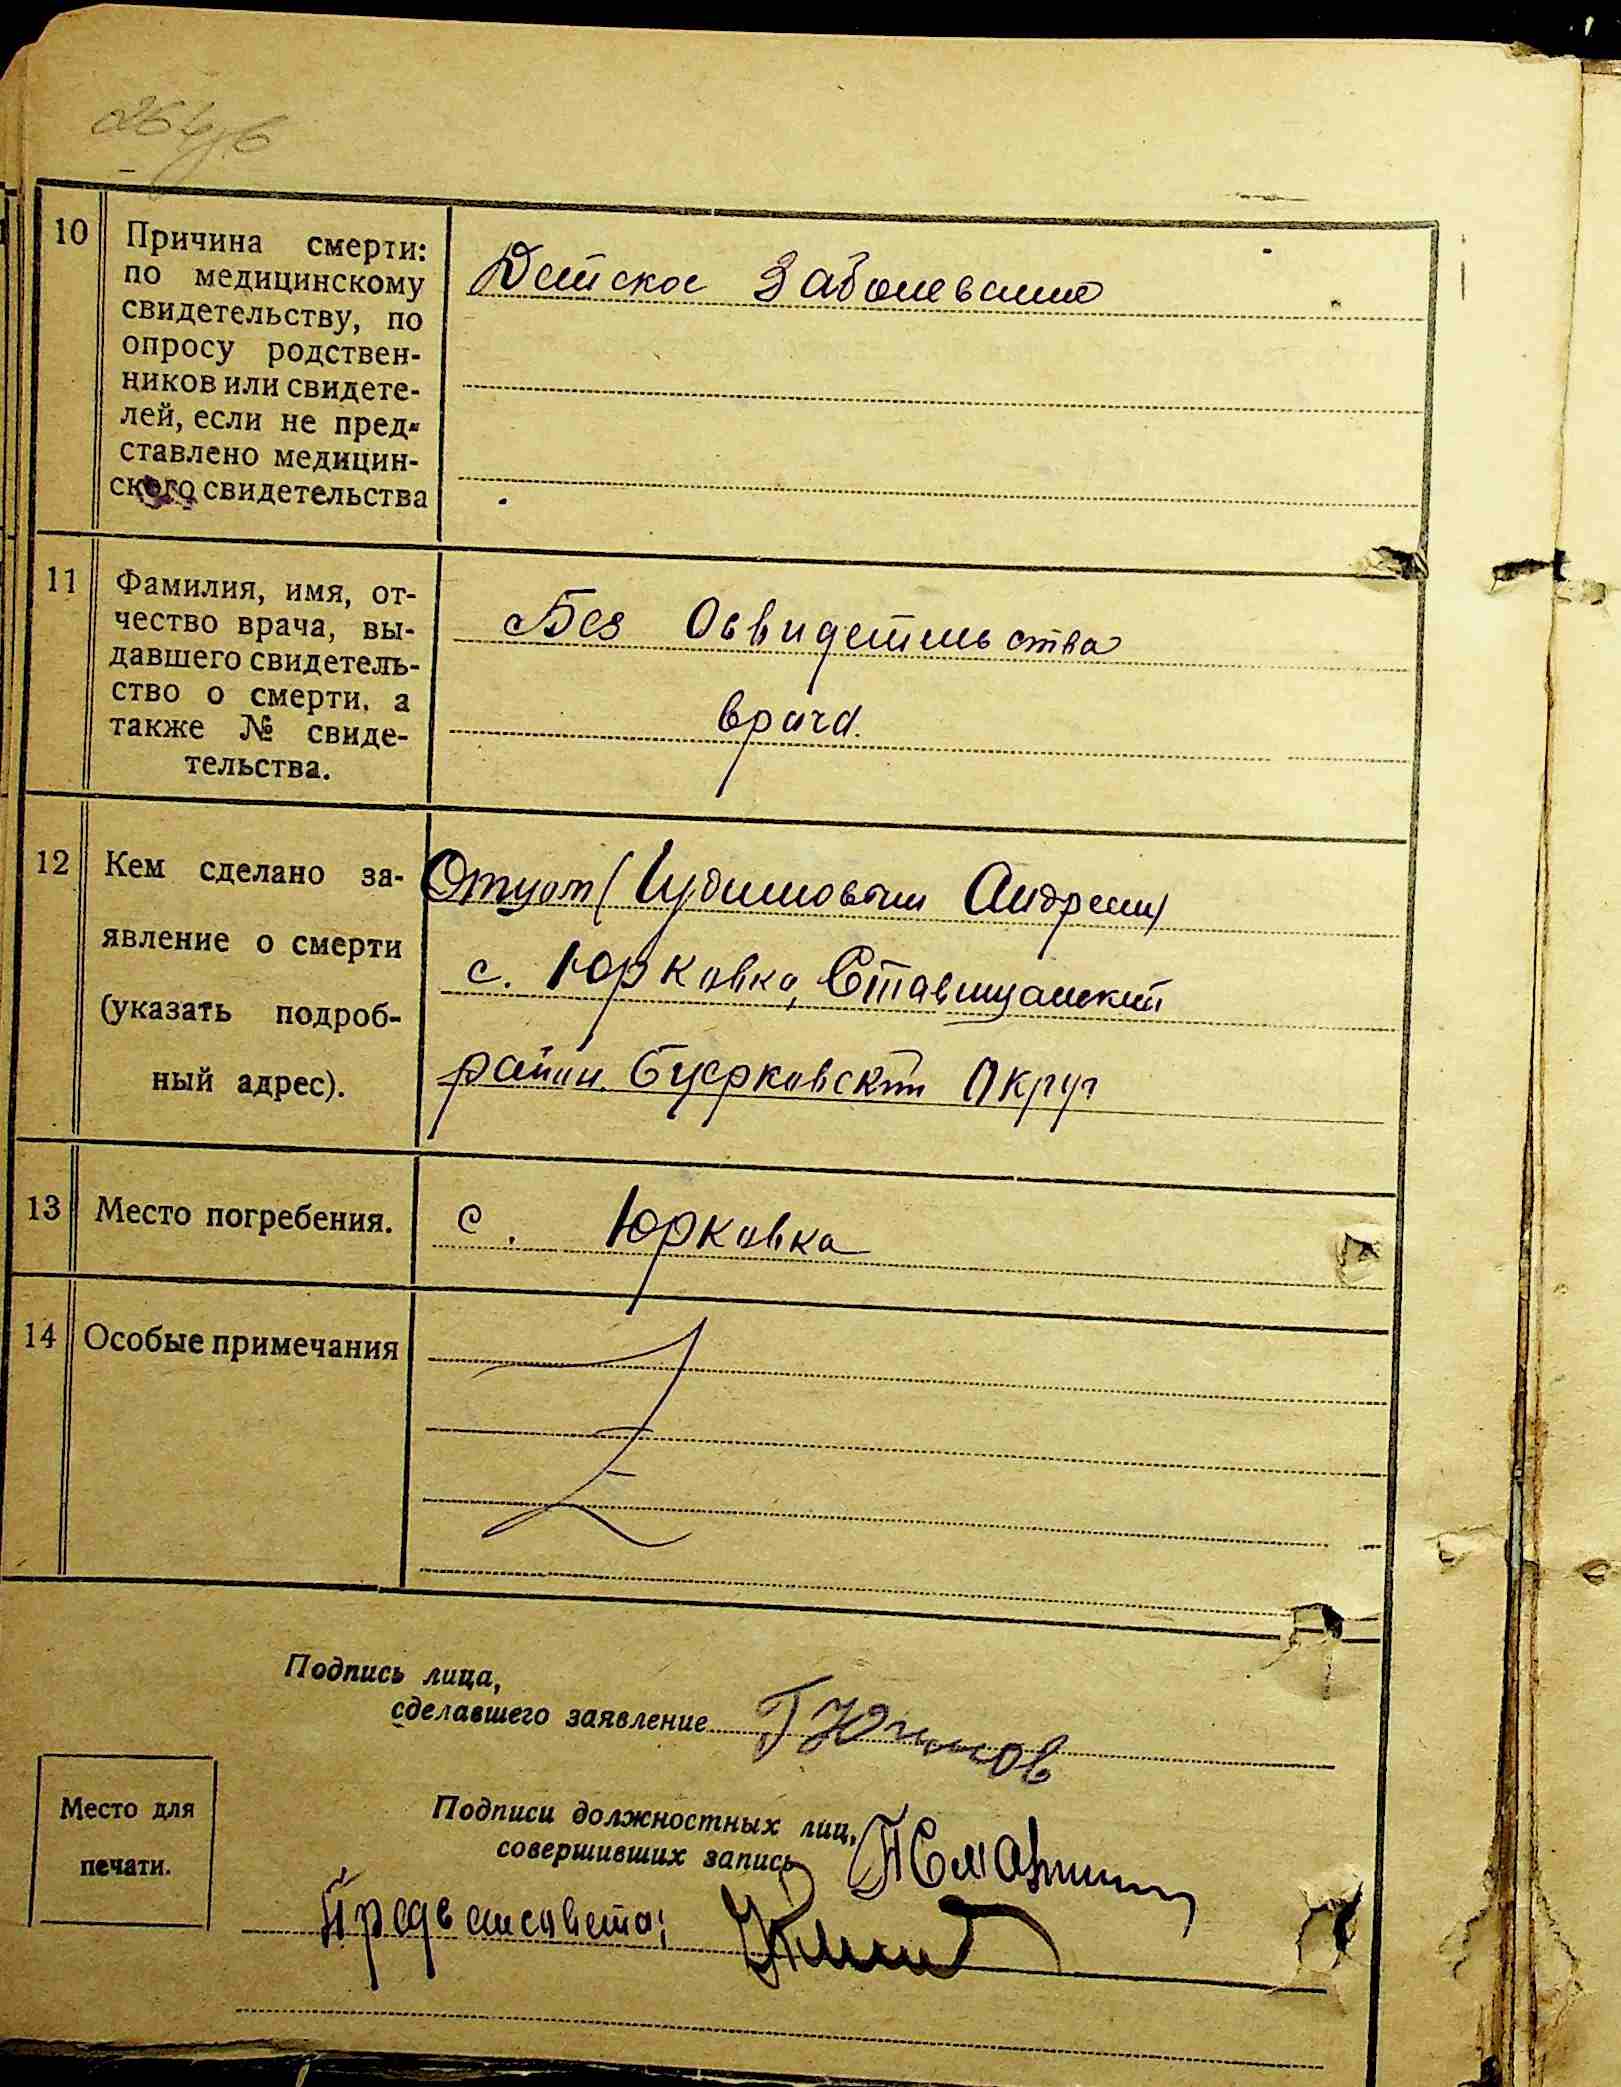 10 Причина смерти:
по медицинскому
свидетельству, по
опросу родствен-
ников или свидете-
лей, если не пред-
ставлено медицин-
ского свидетельства
Детское Заболевание
11 Фамилия, имя, от-
чество врача, вы-
давшего свидетель-
ство о смерти, а
также № свиде-
тельства.
Без Освидетельства
врача.
12 Кем сделано за-
явление о смерти
(указать подроб-
ный адрес).
Отцом (Андреем)
с. Юрковка, Ставищанский
район Округ
13 Место погребения.
с. Юрковка
14 Особые примечания
Подпись лица,
сделавшего заявление
Подписи должностных лиц,
совершивших запись
Место для
печати.
Пред сельсовета: